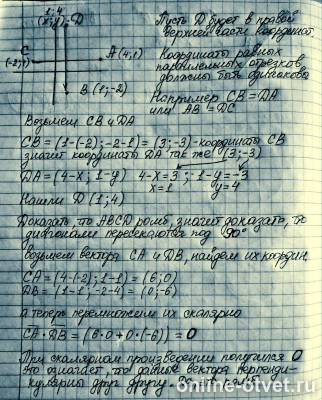 1; 4
(x; y) D
Пусть D будет в правой
верхней части координат.
C
(-2;1)
A (4;1)
B (1;-2)
Координаты равных
параллельных отрезков
должны быть одинаковы
Например CB = DA
или AB = DC
Возьмем CB и DA
CB = (1-(-2); -2-1) = (3;-3) - координаты CB
значит координаты DA так же (3;-3)
DA = (4-x; 1-y) 4-x=3 ; 1-y=-3
x=1 y=4
Нашли D (1;4)
Доказать, что ABCD ромб, значит доказать, что
диагонали пересекаются под 90°
возьмем вектора CA и DB, найдем их координ.
CA = (4-(-2); 1-1) = (6; 0)
DB = (1-1; -2-4) = (0; -6)
а теперь перемножим их скалярно
CA · DB = (6·0 + 0·(-6)) = 0
При скалярном произведении получился 0
это означает, что данные вектора перпенди-
кулярны друг другу.
online-otvet.ru